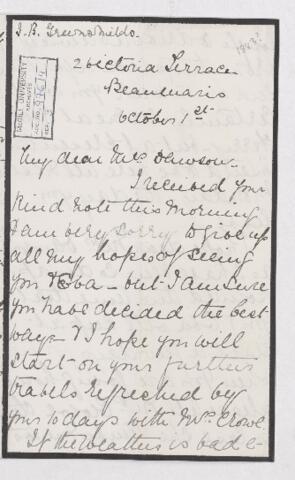 J. B. Greenshields.
1842?
2 Victoria Terrace
Beaumaris
October 1st
My dear Mrs Dawson.
I received your
kind note this morning
I am very sorry to give up
all my hopes of seeing
you & Eva - but I am sure
you have decided the best
way - & I hope you will
start on your further
travels refreshed by
your 10 days with Mrs Crowe.
If the weather is bad &